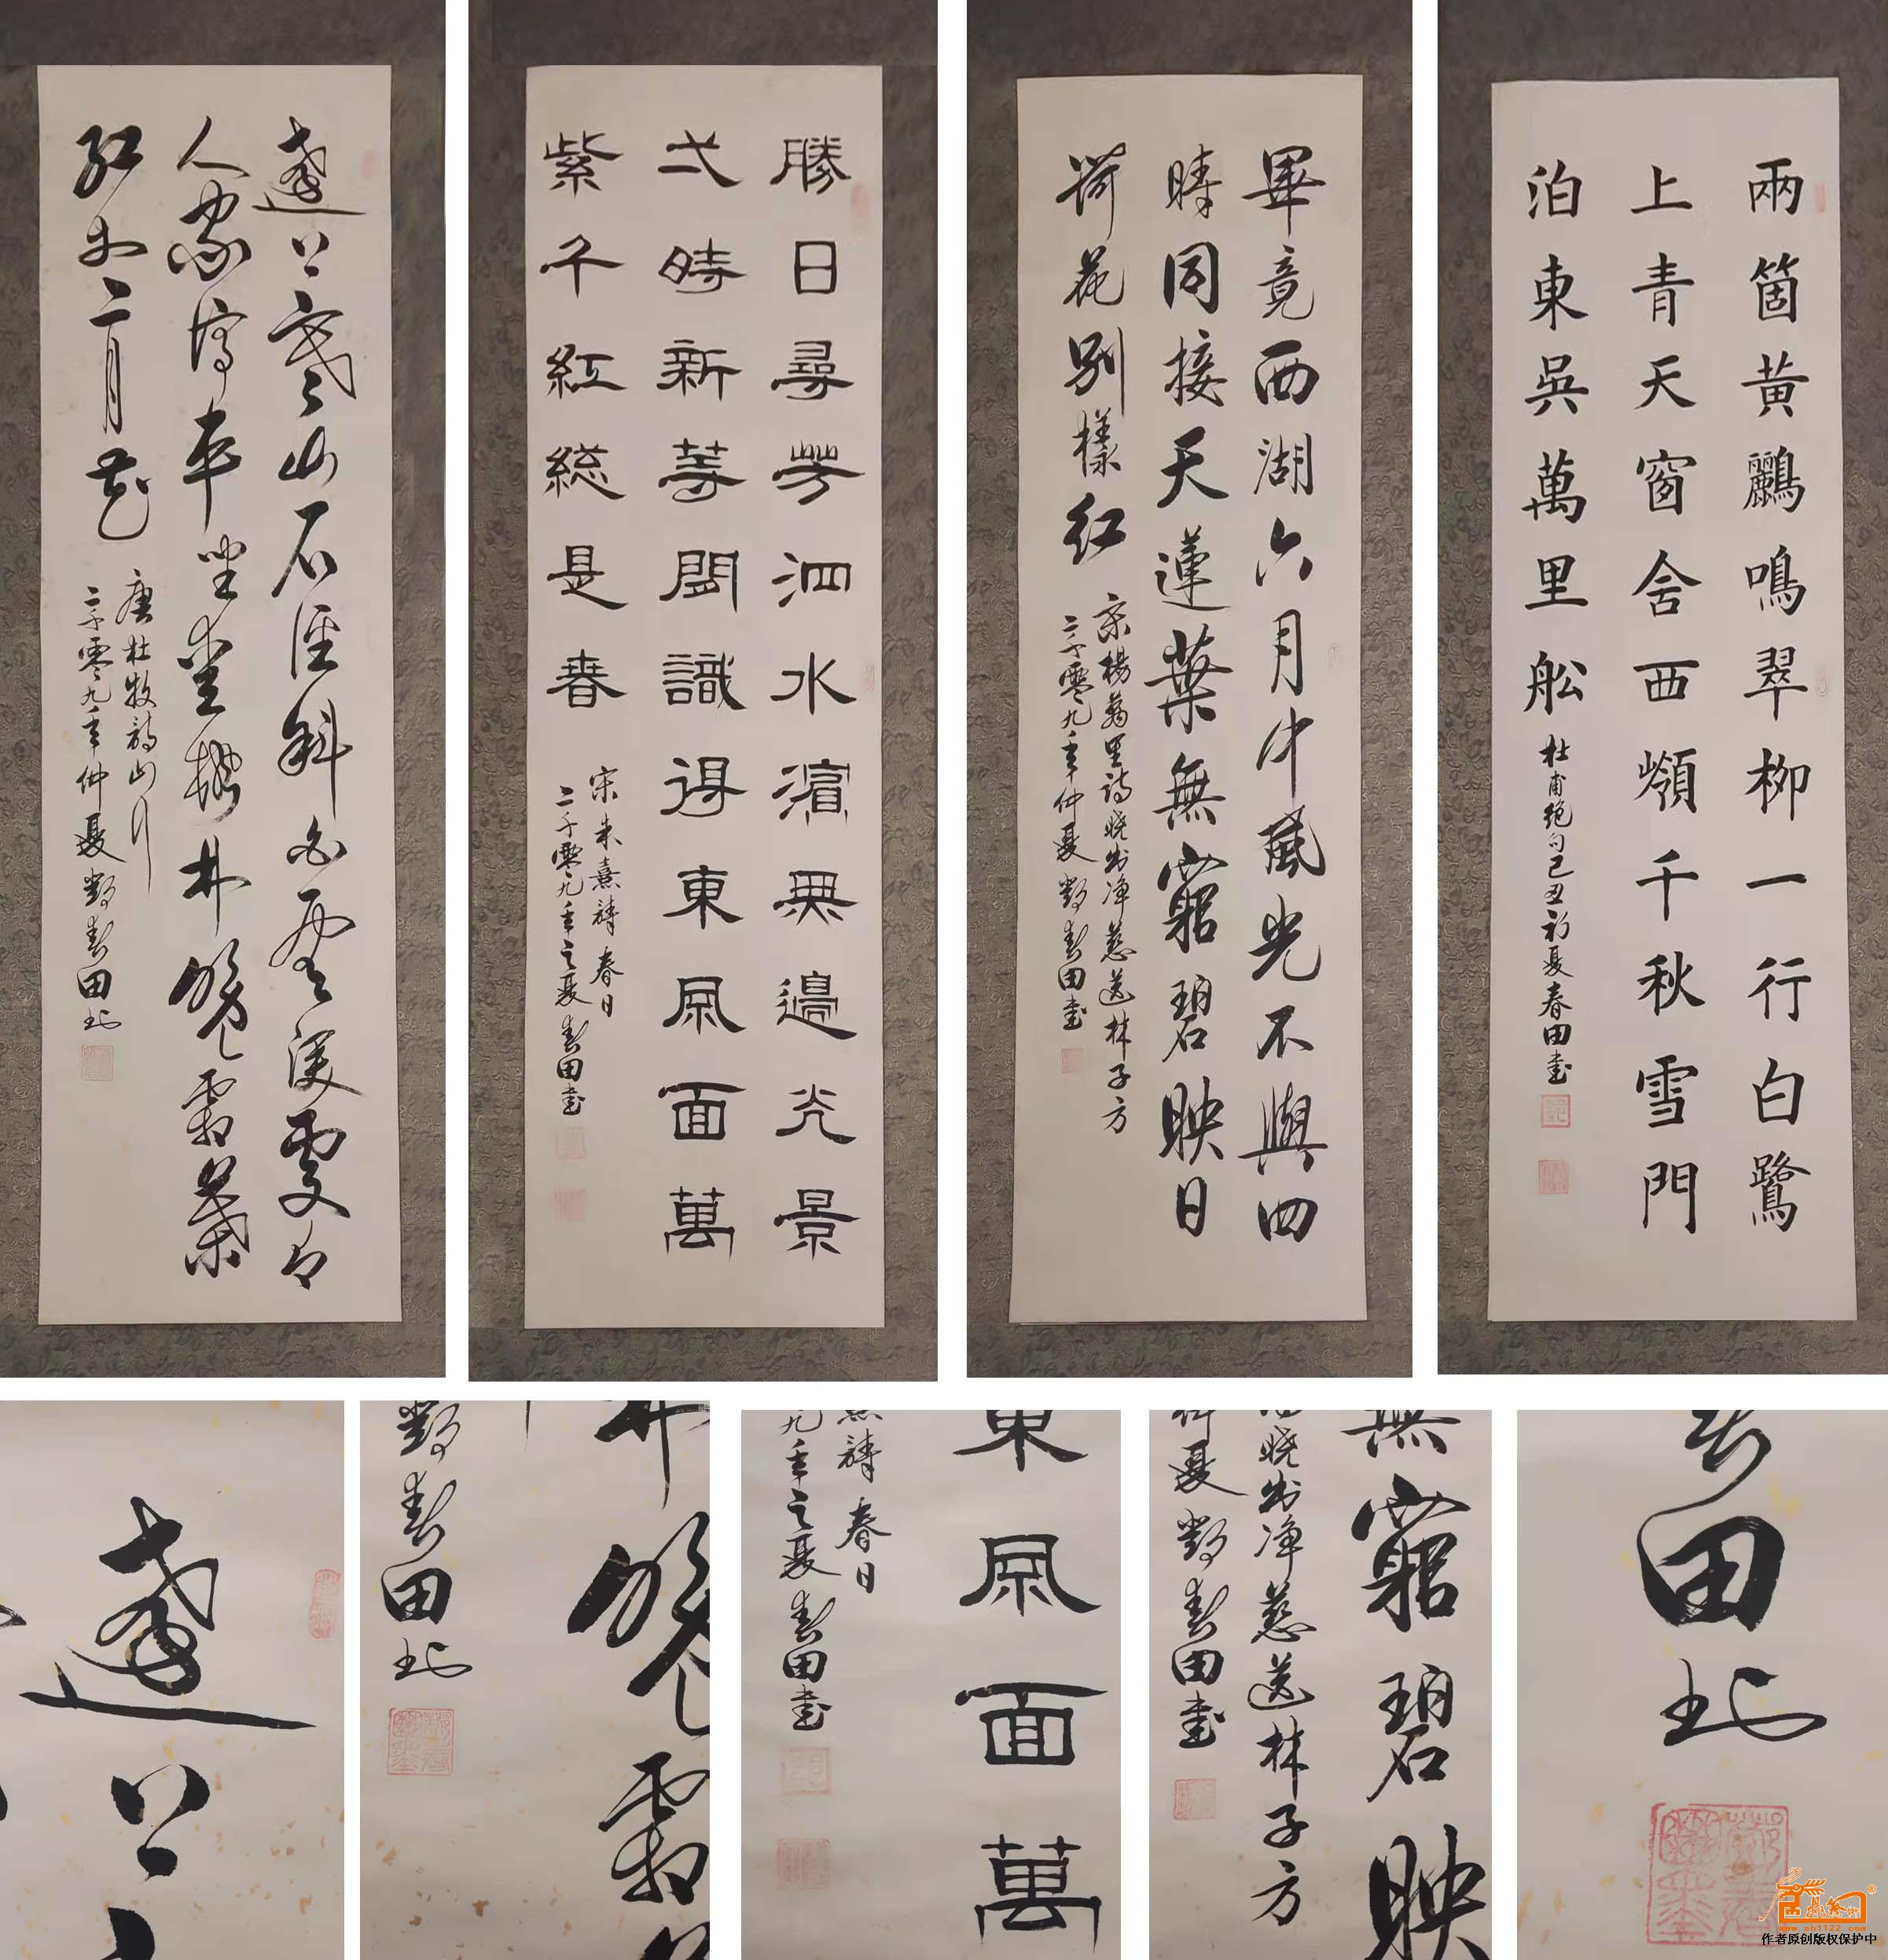 兩箇黃鸝鳴翠柳一行白鷺
上青天窗含西嶺千秋雪門
泊東吳萬里船
杜甫絕句己丑初夏春田書
畢竟西湖六月中風光不與四
時同接天蓮葉無窮碧映日
荷花别樣红
宋楊萬里詩曉出净慈送林子方
二千零九年仲夏鄭春田書
勝日尋芳泗水濱無邊光景
弌時新等閒識得東風面萬
紫千紅総是春
宋朱熹詩春日
二千零九年之夏春田書
遠上寒山石徑斜白雲深處有
人家停車坐愛楓林晚霜葉
紅於二月花
唐杜牧詩山行
二千零九年仲夏鄭春田書
遠上
林晚霜葉
鄭春田書
東風面萬
熹詩春日
九年之夏春田書
無窮碧映
曉出净慈送林子方
仲夏鄭春田書
春田書
www.sh1122.com
作者原创版权保护中